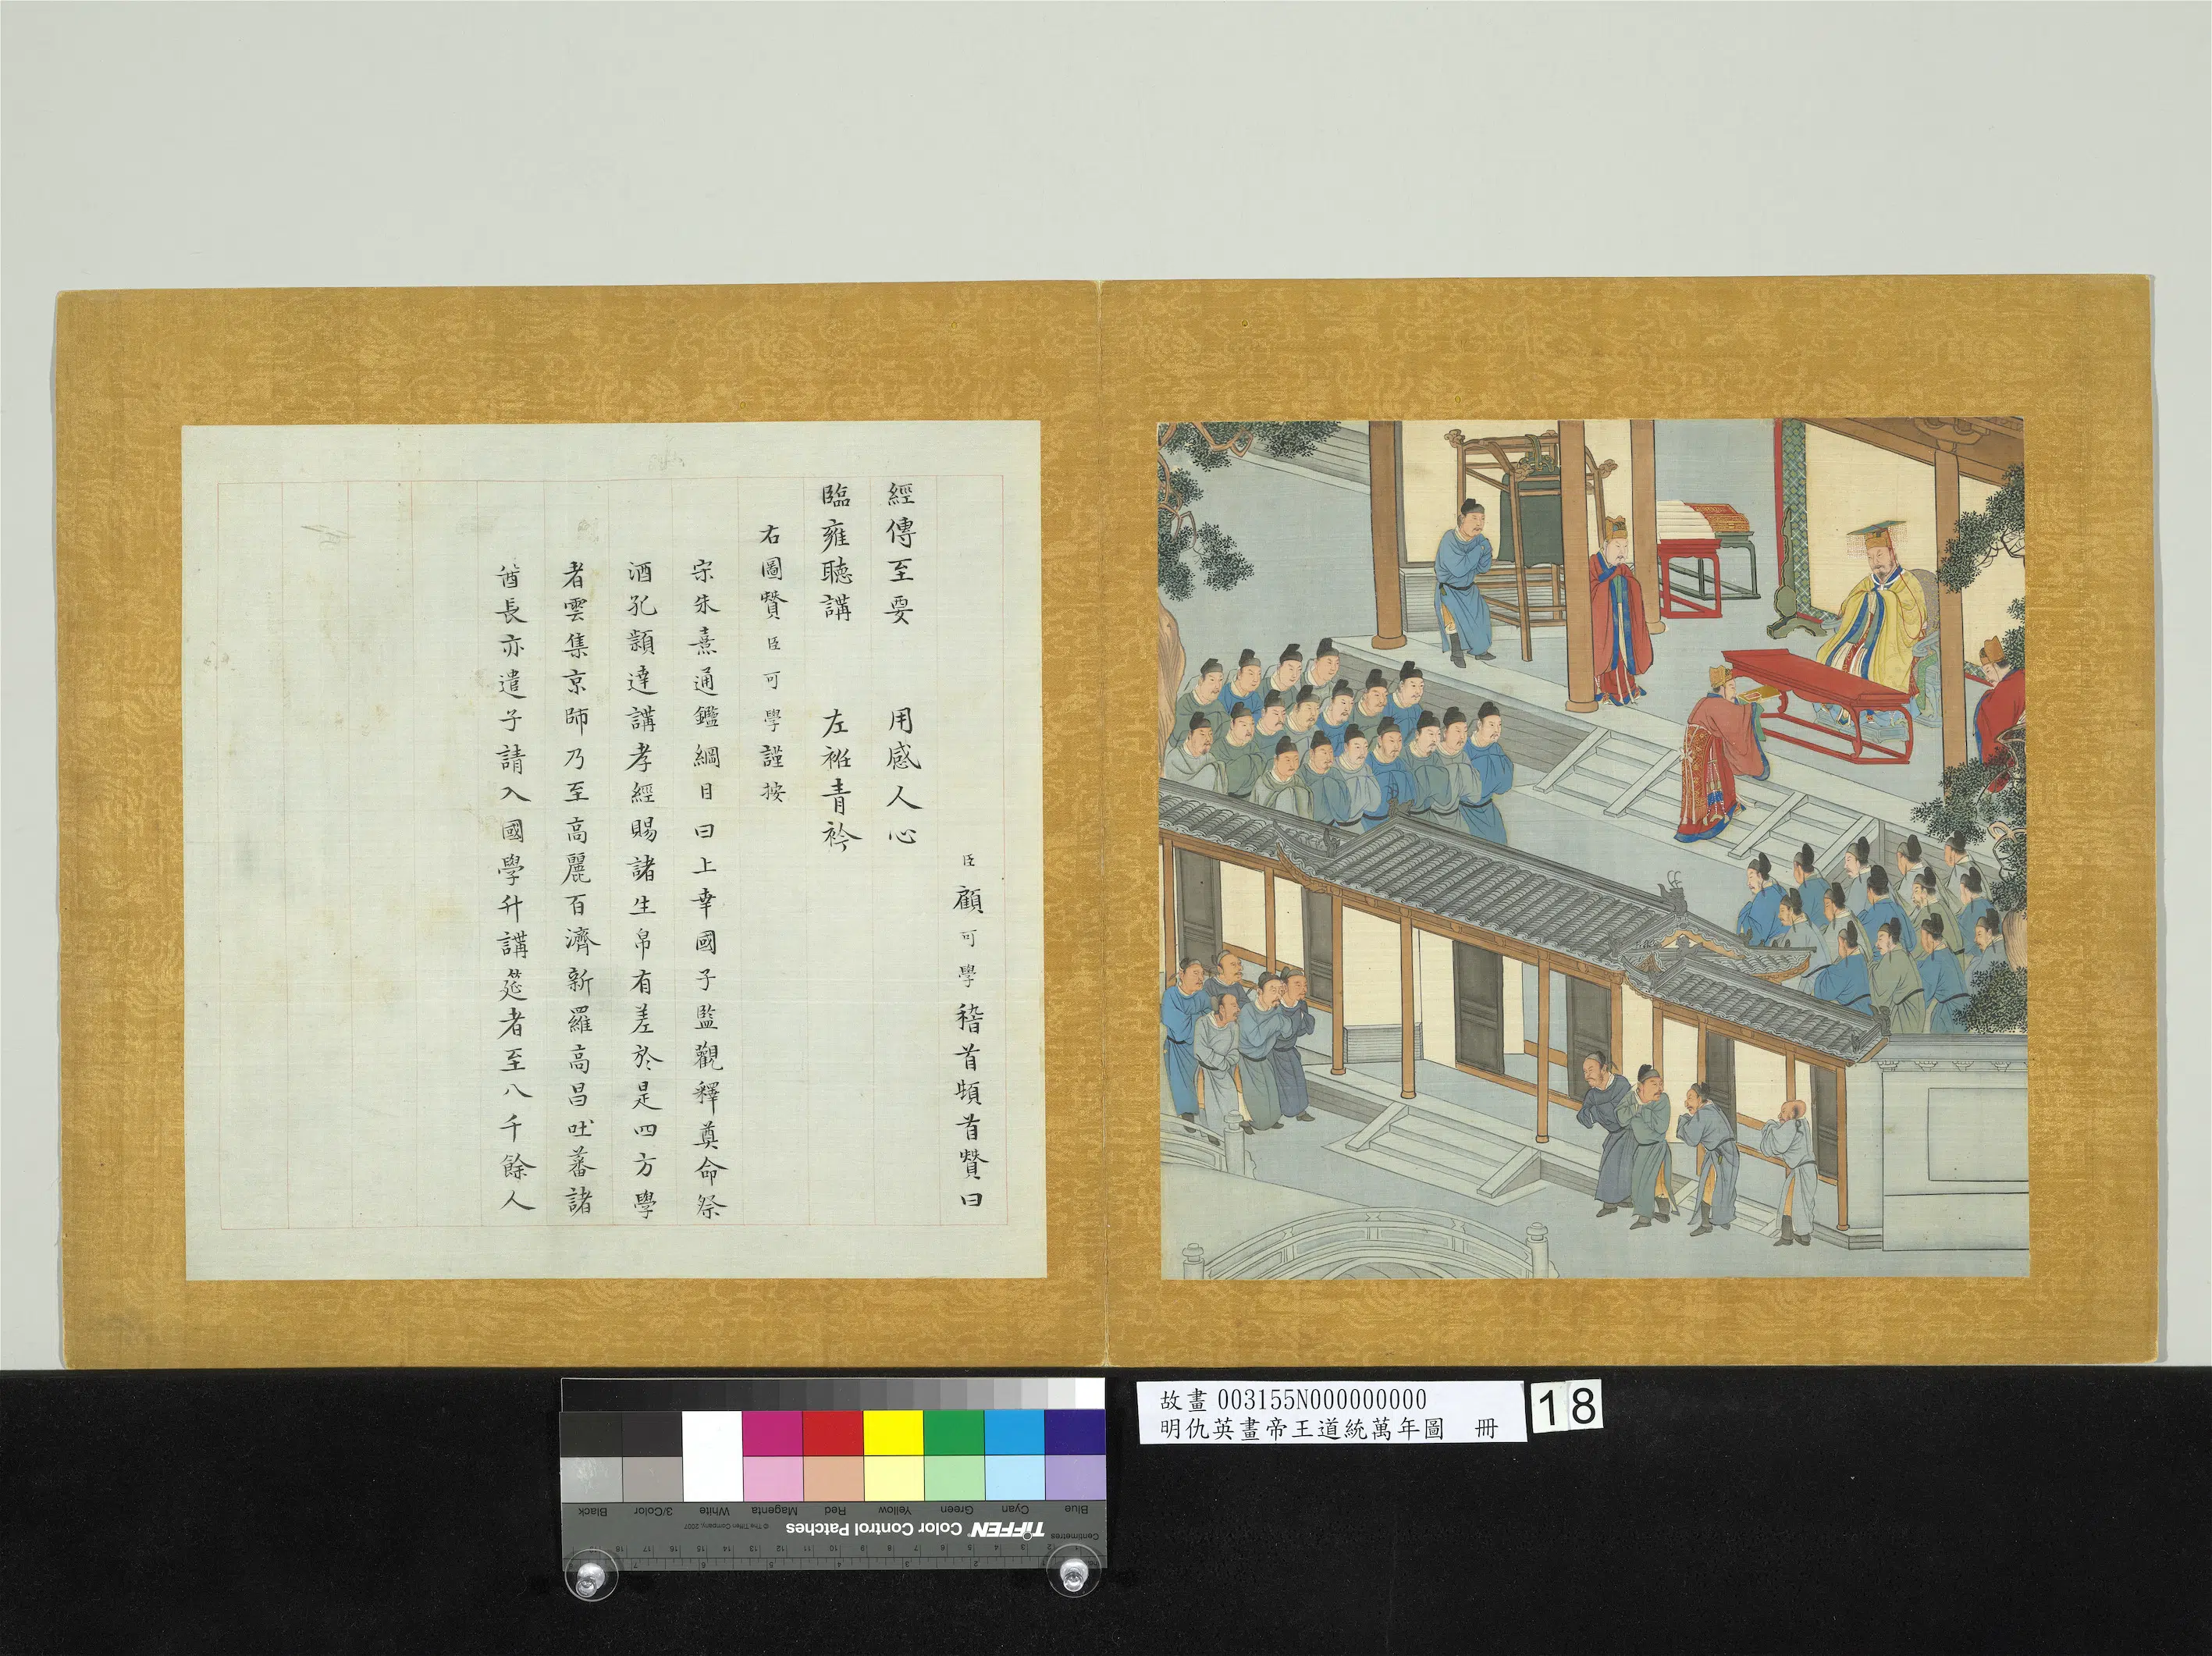 臣顧可學稽首頓首贊曰
經傳至要 用感人心
臨雍聽講 左袵青衿
右圖贊臣可學謹按
宋朱熹通鑑綱目曰上幸國子監觀釋奠命祭
酒孔穎達講孝經賜諸生帛有差於是四方學
者雲集京師乃至高麗百濟新羅高昌吐蕃諸
酋長亦遣子請入國學升講筵者至八千餘人
故畫 003155N000000000
明仇英畫帝王道統萬年圖 冊
18
Blue Cyan Green Yellow Red Magenta White 3/Color Black
Centimetres TIFFEN Color Control Patches © The Tiffen Company, 2007